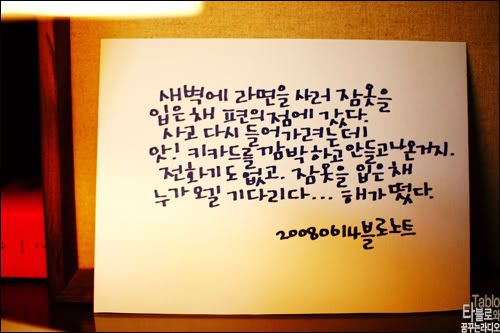 새벽에 라면을 사러 잠옷을
입은채 편의점에 갔다.
사고 다시 들어가려는데
앗! 키카드를 깜박하고 안들고나온거지.
전화기도 없고. 잠옷을 입은채
누가 오길 기다리다... 해가 떴다.
20080614 블로노트
Tablo
타블로와
꿈꾸는라디오